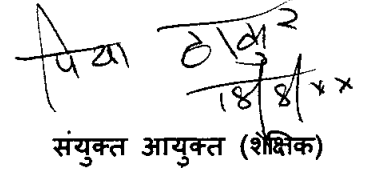 पिया ठाकुर
18/8/**
संयुक्त आयुक्त (शैक्षिक)